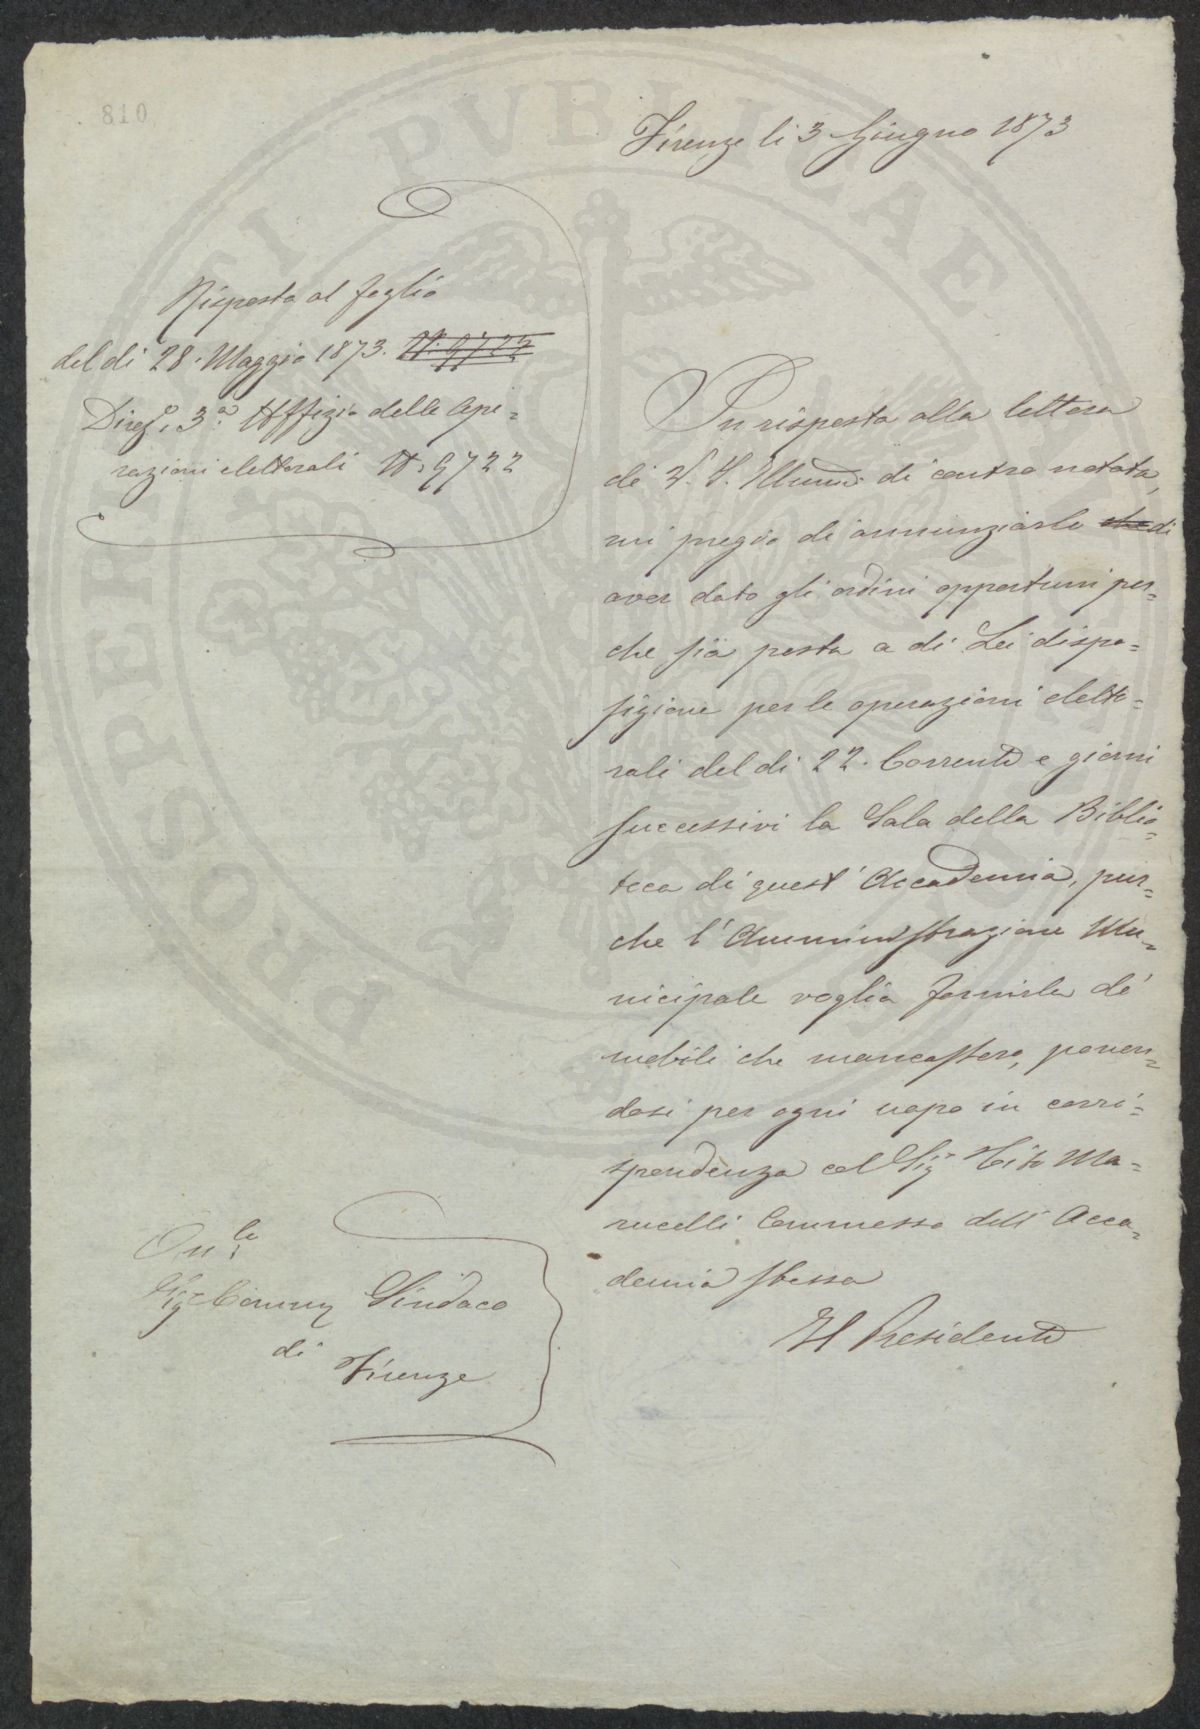 810
Firenze li 3 Giugno 1873
Risposta al foglio
del di 28. Maggio 1873. N. 9722
Direz.e 3.a Uffizio delle Ope=
razioni elettorali N. 9722
In risposta alla lettera
di V. S. Illumã. di contro notata,
mi pregio di annunziarle che di
aver dato gli ordini opportuni per=
che sia posta a di Lei dispo=
sizione per le operazioni eletto=
rali del di 22. Corrente e giorni
successivi la Sala della Biblio=
teca di quest' Accademia, pur=
che l' Amministrazione Mu=
nicipale voglia fornirla de'
mobili che mancassero, ponen=
dosi per ogni uopo in corri=
spondenza col Sig.r Tito Ma=
rucelli Commesso dell' Acca=
demia stessa
Il Presidente
On.le
Sig.r Comm Sindaco
di
Firenze
PERICVLVM PVBLICAE